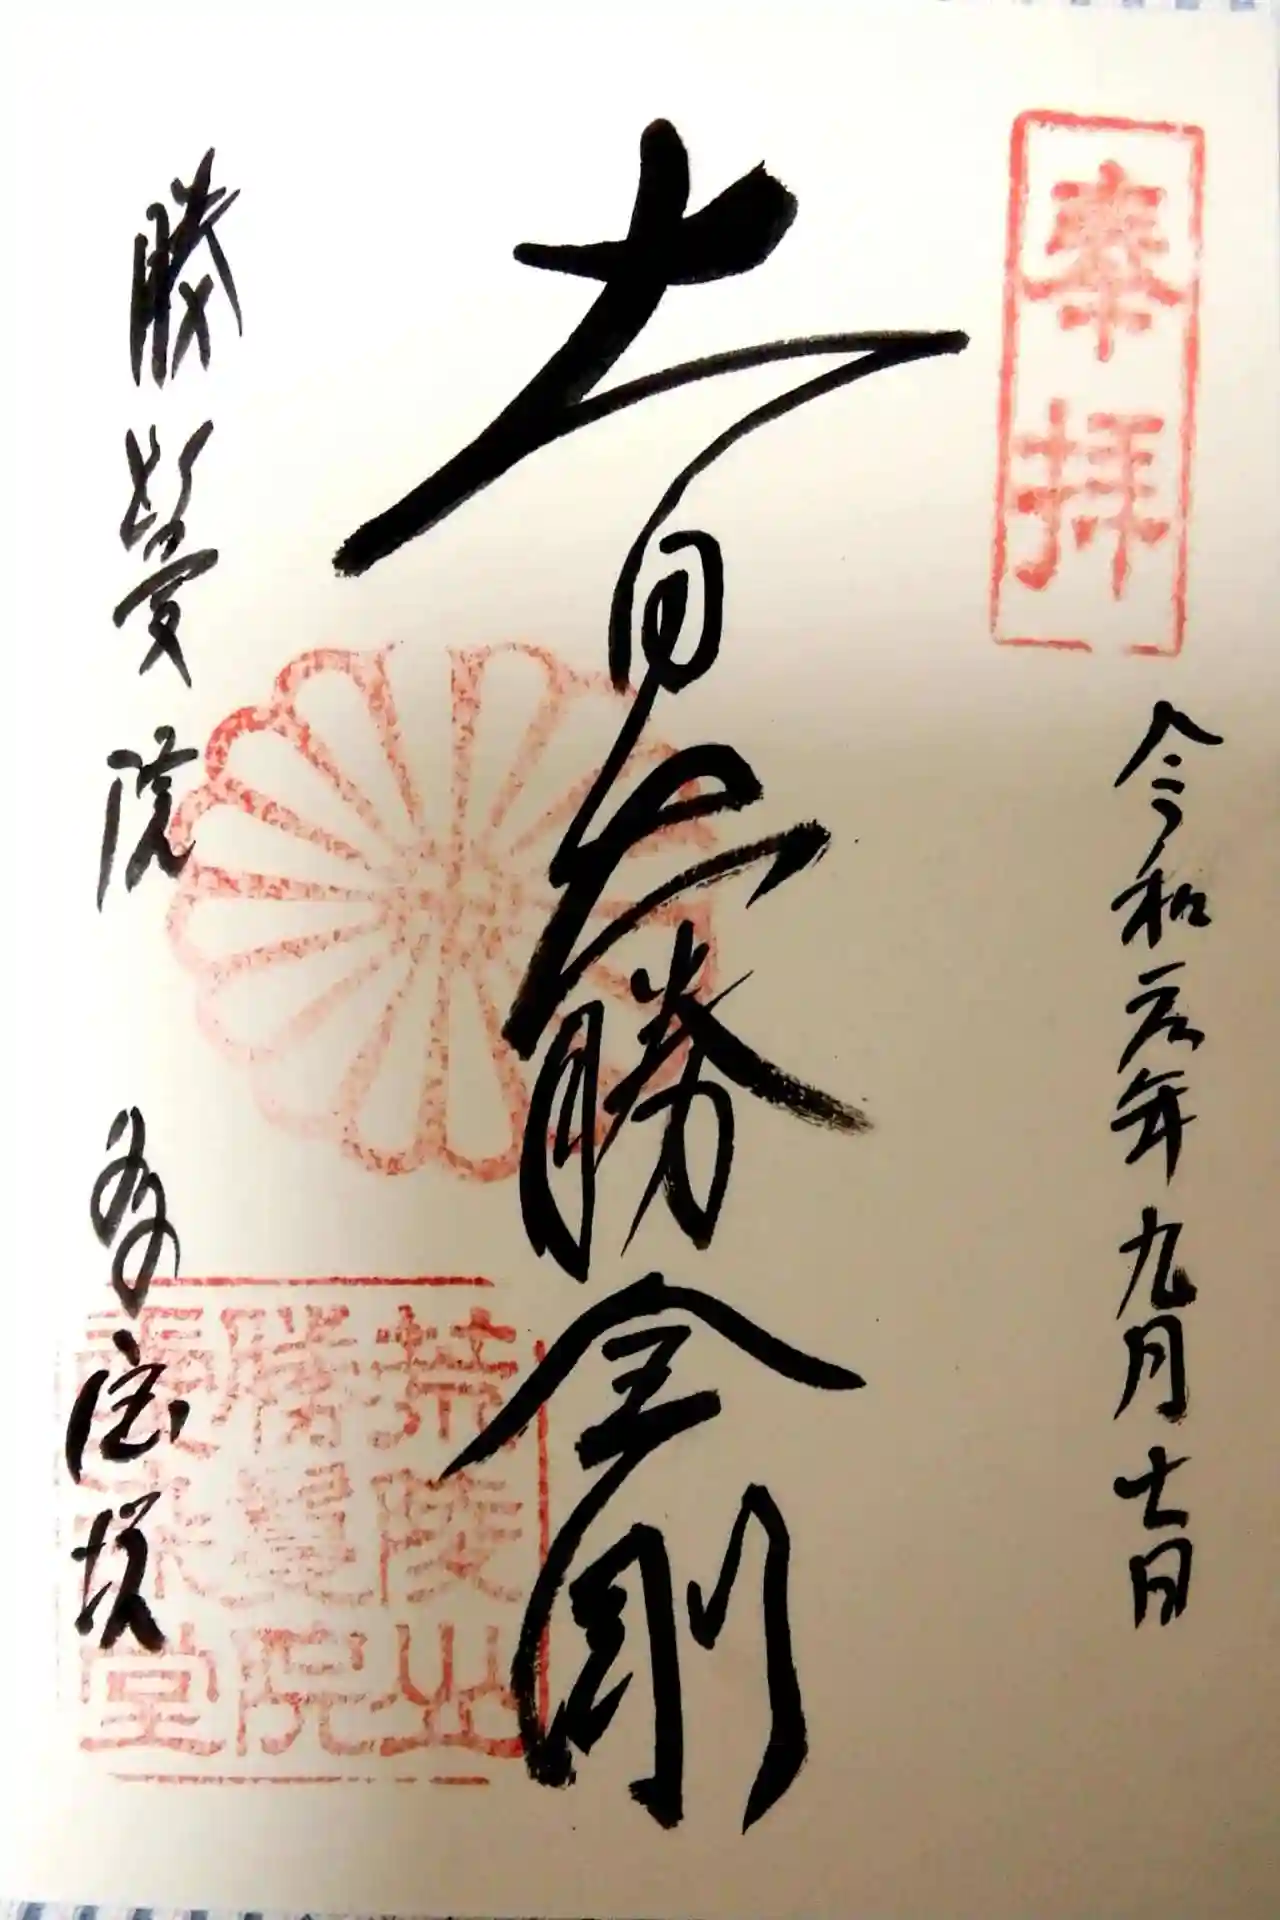 奉拝
令和元年九月七日
大日大勝金剛
勝鬘院　多宝塔
荒陵山
勝鬘院
愛染堂